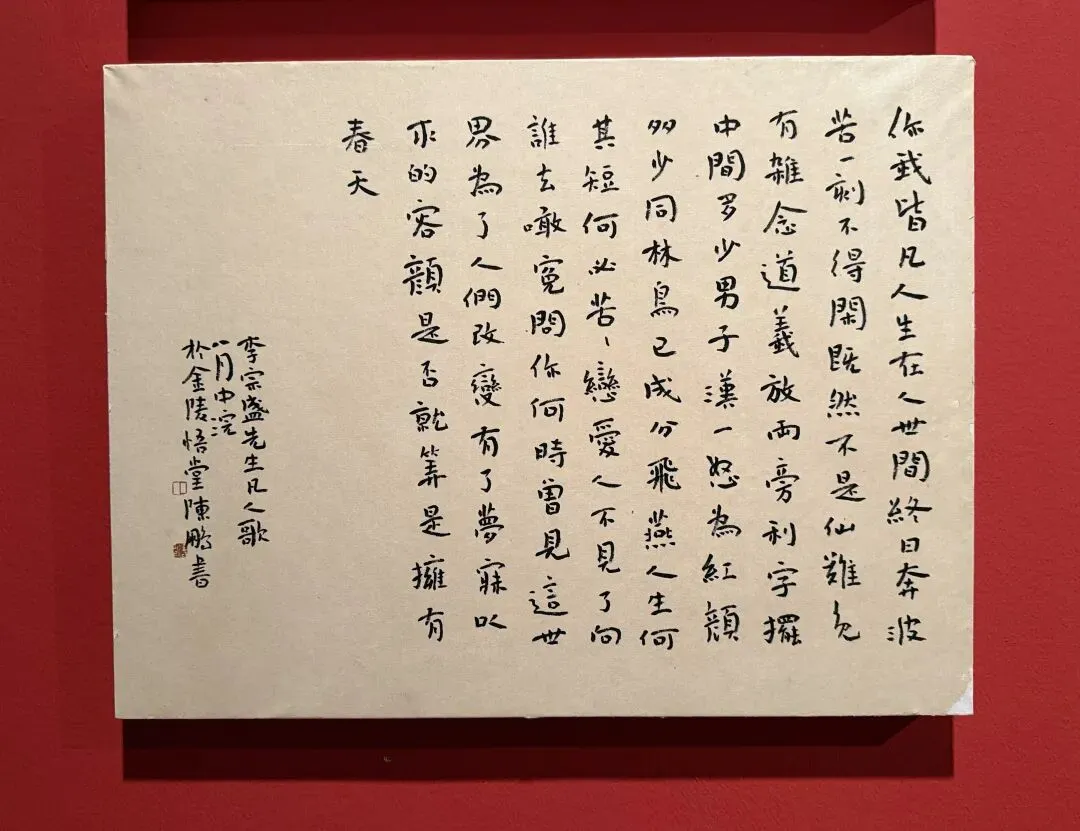 你我皆凡人生在人世間終日奔波
苦一刻不得閑既然不是仙難免
有雜念道義放兩旁利字擺
中間多少男子漢一怒為紅顏
多少同林鳥已成分飛燕人生何
其短何必苦〻戀愛人不見了向
誰去喊冤問你何時曾見這世
界為了人們改變有了夢寐以
求的容顏是否就算是擁有
春天
李宗盛先生凡人歌
八月中浣
於金陵悟堂陳鵬書